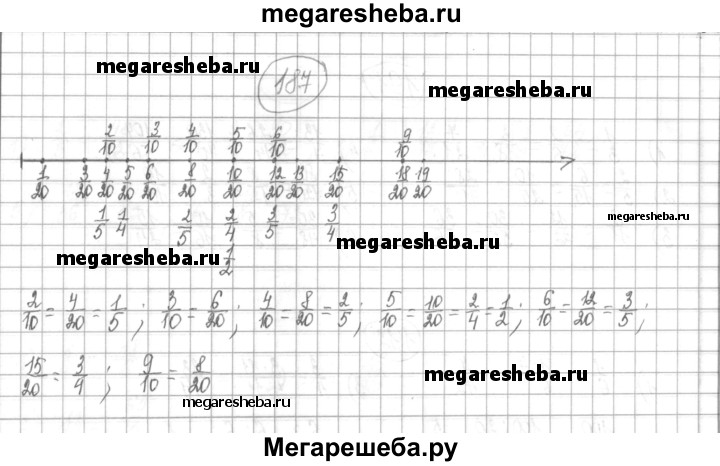 megaresheba.ru
187
megaresheba.ru megaresheba.ru
2/10 3/10 4/10 5/10 6/10 9/10
1/20 3/20 4/20 5/20 6/20 8/20 10/20 12/20 13/20 15/20 18/20 19/20
1/5 1/4 2/5 2/4 3/5 3/4
megaresheba.ru
megaresheba.ru
megaresheba.ru
1/2
2/10 = 4/20 = 1/5 ; 3/10 = 6/20 ; 4/10 = 8/20 = 2/5 ; 5/10 = 10/20 = 2/4 = 1/2 ; 6/10 = 12/20 = 3/5 ;
15/20 = 3/4 ; 9/10 = 8/20
megaresheba.ru
megaresheba.ru
Мегарешеба.ру